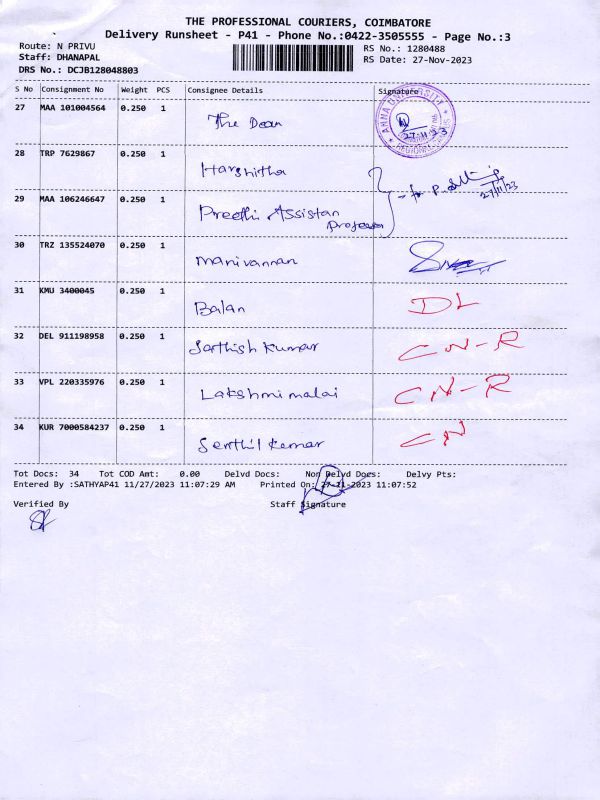 THE PROFESSIONAL COURIERS, COIMBATORE
Delivery Runsheet - P41 - Phone No.:0422-3505555 - Page No.:3
Route: N PRIVU RS No.: 1280488
Staff: DHANAPAL RS Date: 27-Nov-2023
DRS No.: DCJB128048803
S No Consignment No Weight PCS Consignee Details Signature
27 MAA 101004564 0.250 1 The Dean
ANNA UNIVERSITY
27.11.23
28 TRP 7629867 0.250 1 Harshitha
27/11/23
29 MAA 106246647 0.250 1 Preethi Assistan
Professor
30 TRZ 135524070 0.250 1 Manivannan
31 KMU 3400045 0.250 1 Balan DL
32 DEL 911198958 0.250 1 Sathish Kumar CN-R
33 VPL 220335976 0.250 1 Lakshmi malai CN-R
34 KUR 7000584237 0.250 1 Senthil Kumar CN
Tot Docs: 34 Tot COD Amt: 0.00 Delvd Docs: Non Delvd Docs: Delvy Pts:
Entered By :SATHYAP41 11/27/2023 11:07:29 AM Printed On: 27-11-2023 11:07:52
Verified By Staff Signature